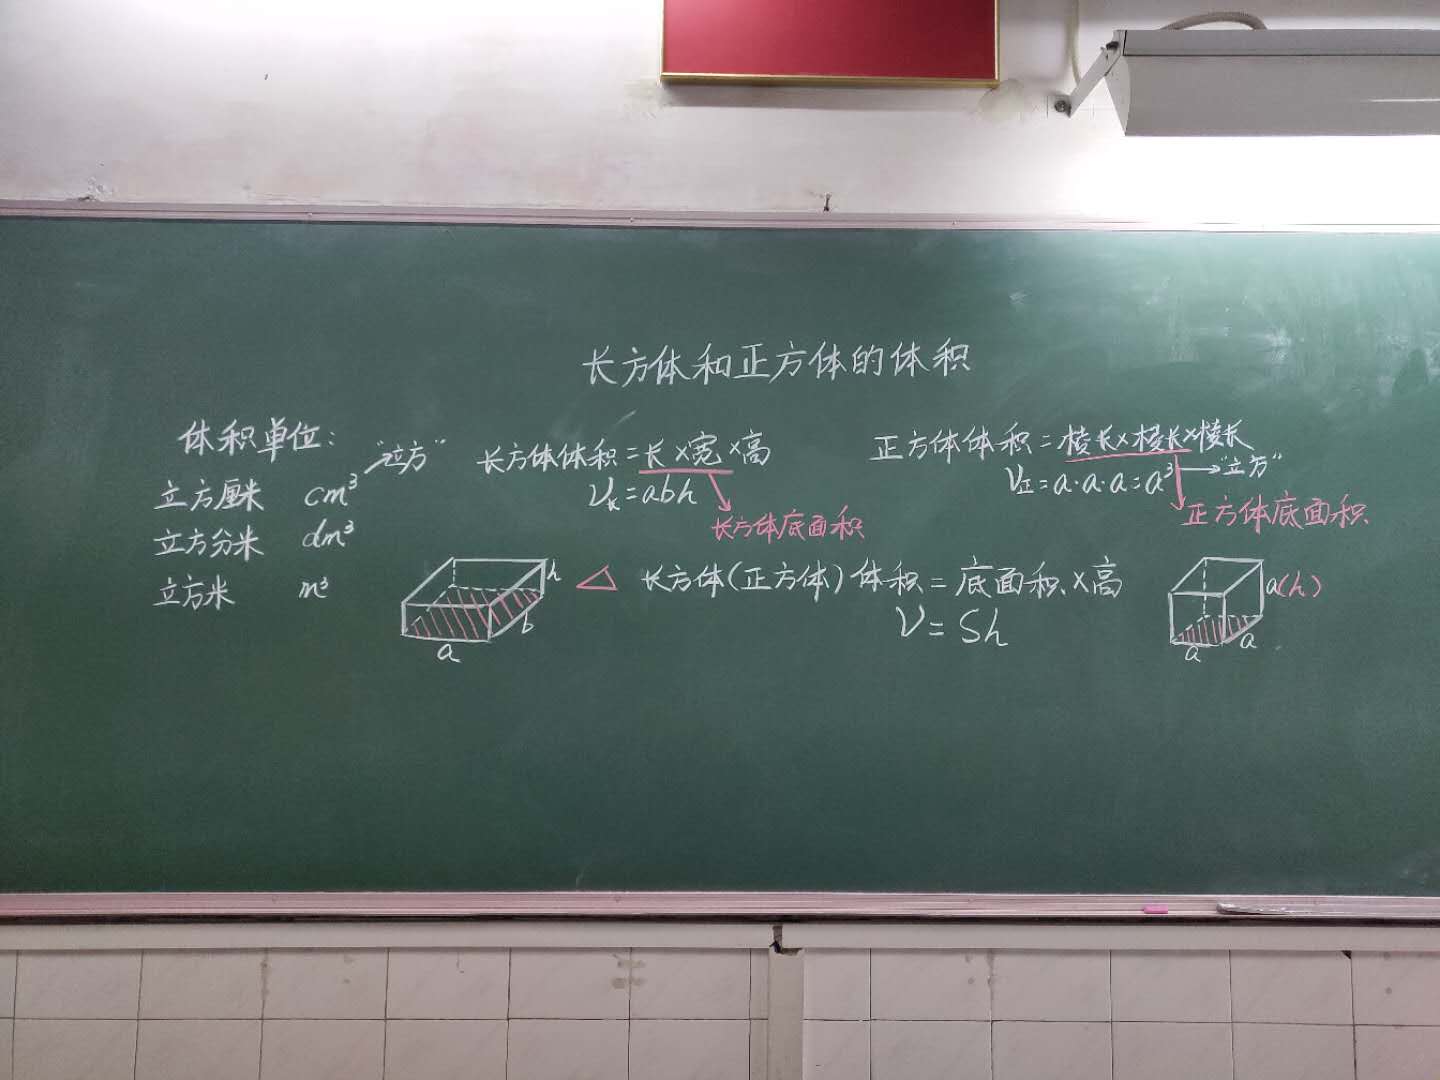 长方体和正方体的体积
体积单位：
立方厘米 cm³ “立方”
立方分米 dm³
立方米 m³
长方体体积=长×宽×高
V长=abh
长方体底面积
正方体体积=棱长×棱长×棱长
V正=a·a·a=a³ “立方”
正方体底面积
△ 长方体(正方体)体积=底面积×高
V=Sh
h
b
a
a(h)
a
a